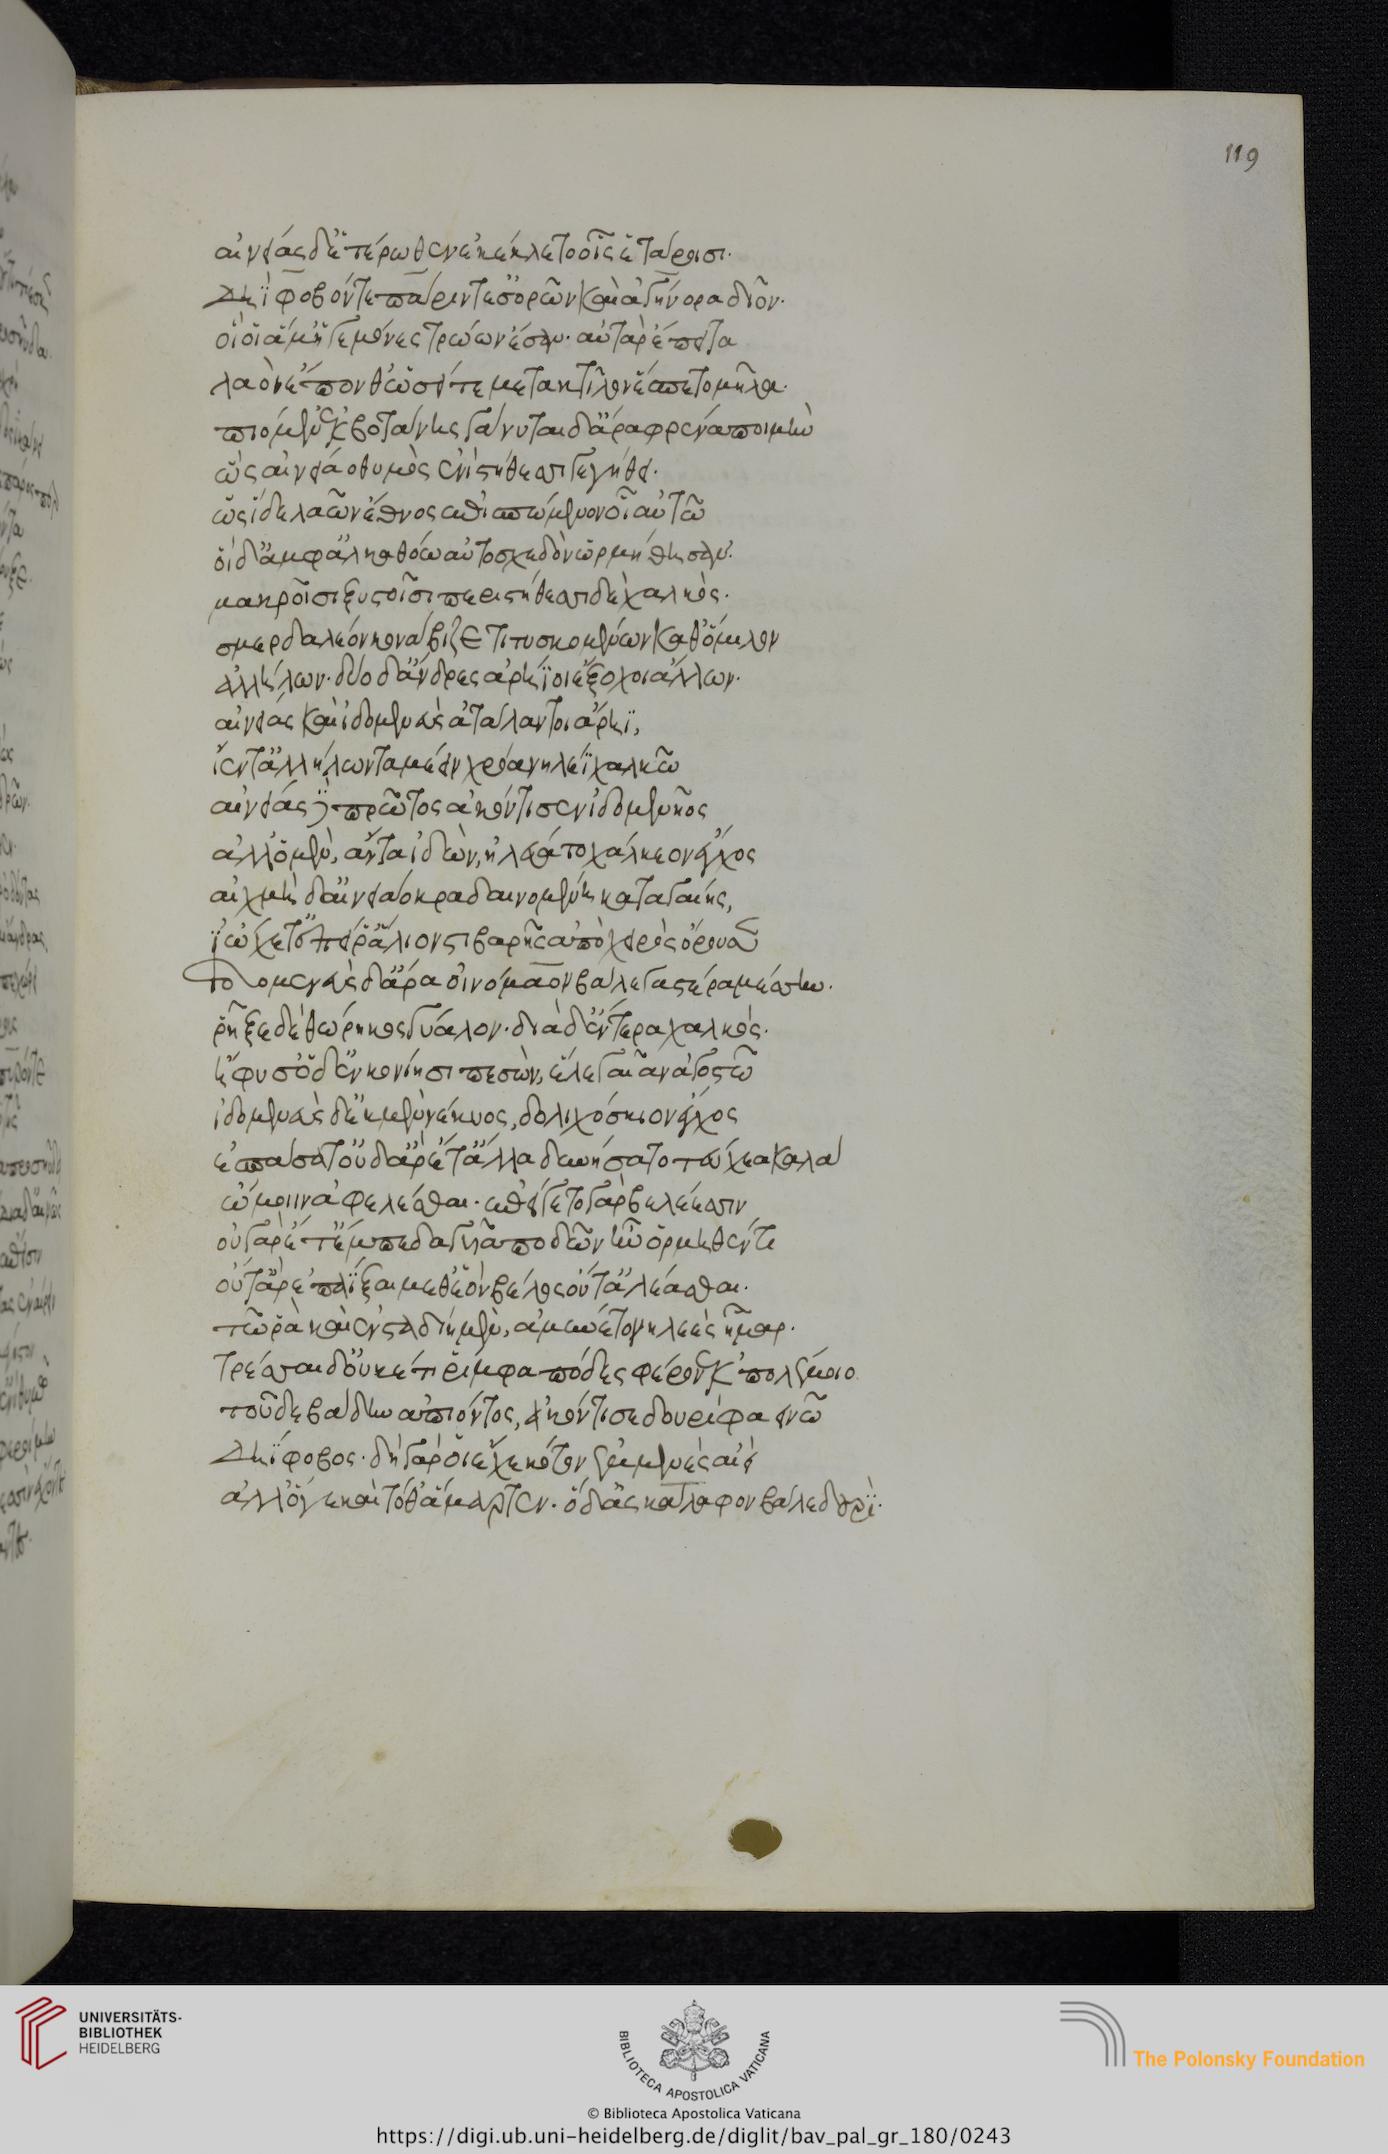 119
αἰνείας δ' ἑτέρωθεν ἐκέκλετο οἷς ἑτάροισι·
Δηΐφοβόν τε πάριν τ' ἐσορῶν καὶ ἀγήνορα δῖον·
οἵ οἱ ἅμ' ἡγεμόνες τρώων ἔσαν· αὐτὰρ ἔπειτα
λαοὶ ἕπονθ' ὡσεί τε μετὰ κτίλον ἕσπετο μῆλα·
πιόμεν' ἐκ βοτάνης γάνυται δ' ἄρα φρένα ποιμὴν
ὣς αἰνεία θυμὸς ἐνὶ στήθεσσι γεγήθει·
ὡς ἴδε λαῶν ἔθνος ἐπισπώμενον οἷ αὐτῶ
οἱ δ' ἀμφ' ἀλκαθόω αὐτοσχεδὸν ὡρμήθησαν·
μακροῖσι ξυστοῖσι περὶ στήθεσσι δὲ χαλκὸς·
σμερδαλέον κονάβιζε τιτυσκομένων καθ' ὅμιλον
ἀλλήλων· δύο δ' ἄνδρες ἀρήϊοι ἔξοχοι ἄλλων·
αἰνείας καὶ ἰδομενεὺς ἀτάλαντοι ἄρηϊ,
ἵεντ' ἀλλήλων ταμέειν χρόα νηλέϊ χαλκῶ
αἰνείας δὲ πρῶτος ἀκόντισεν ἰδομενῆος
ἀλλ' ὁ μὲν, ἄντα ἰδὼν, ἠλεύατο χάλκεον ἔγχος
αἰχμὴ δ' αἰνείαο κραδαινομένη κατὰ γαίης,
ᾤχετ' ἐπεί ῥ' ἅλιον στιβαρῆς ἀπὸ χειρὸς ὄρουσεν
Ἰδομενεὺς δ' ἄρα οἰνόμαον βάλε γαστέρα μέσσην·
ῥῆξε δὲ θώρηκος γύαλον· διὰ δ' ἔντερα χαλκὸς·
ἤφυσ' ὁ δ' ἐν κονίησι πεσὼν, ἕλε γαῖαν ἀγοστῶ
ἰδομενεὺς δ' ἐκ μὲν νέκυος, δολιχόσκιον ἔγχος
ἐσπάσατ' οὐδ' ἄρ' ἔτ' ἄλλα δυνήσατο τεύχεα καλὰ
ὤμοιιν ἀφελέσθαι· ἐπείγετο γὰρ βελέεσσιν
οὐ γὰρ ἔτ' ἔμπεδα γυῖα ποδῶν ἦν ὁρμηθέντι
οὔτ' ἄρ' ἐπαΐξαι μεθ' ἑὸν βέλος οὔτ' ἀλέασθαι·
τῶ ῥα καὶ ἐν σταδίη μὲν, ἀμύνετο νηλεὲς ἦμαρ·
τρέσσαι δ' οὐκέτι ῥίμφα πόδες φέρον ἐκ πολέμοιο
τοῦ δὲ βάδην ἀπιόντος, ἀκόντισε δουρὶ φαεινῶ
Δηΐφοβος· δὴ γάρ οἱ ἔχε κότον ἐμμενὲς αἰεί
ἀλλ' ὅγε καὶ τόθ' ἅμαρτεν· ὁ δ' ἀσκάλαφον βάλε δουρὶ·
UNIVERSITÄTS-
BIBLIOTHEK
HEIDELBERG
BIBLIOTECA APOSTOLICA VATICANA
The Polonsky Foundation
© Biblioteca Apostolica Vaticana
https://digi.ub.uni-heidelberg.de/diglit/bav_pal_gr_180/0243